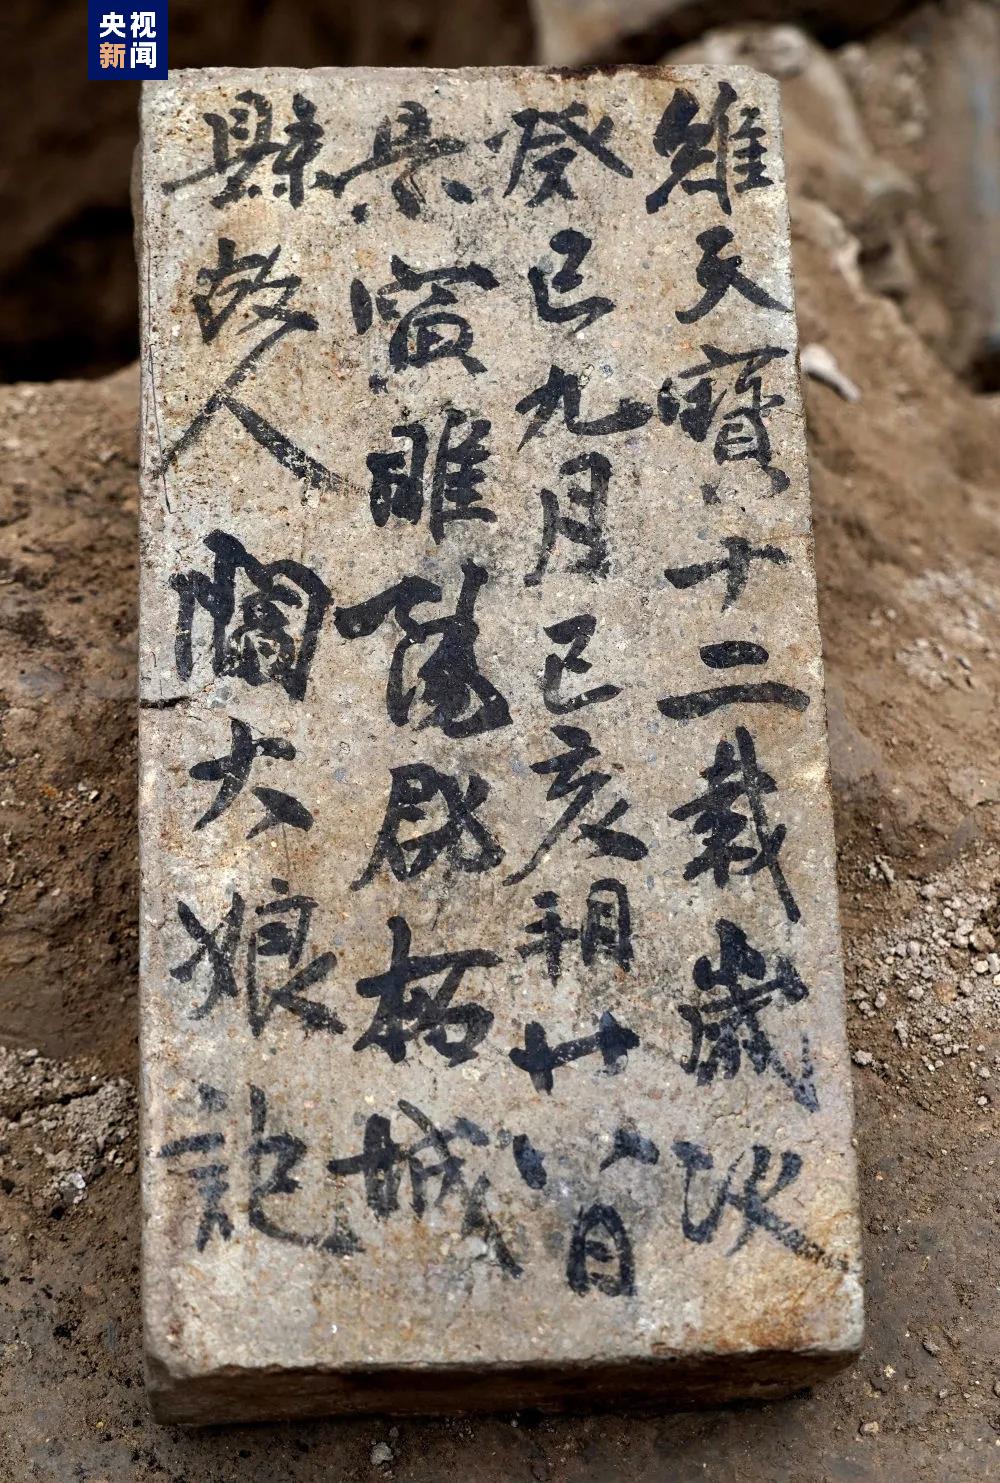 央视
新闻
維天寶十二載歲次
癸巳九月己亥朔廿八日
寅睢陽郡柘城
縣故人大娘記